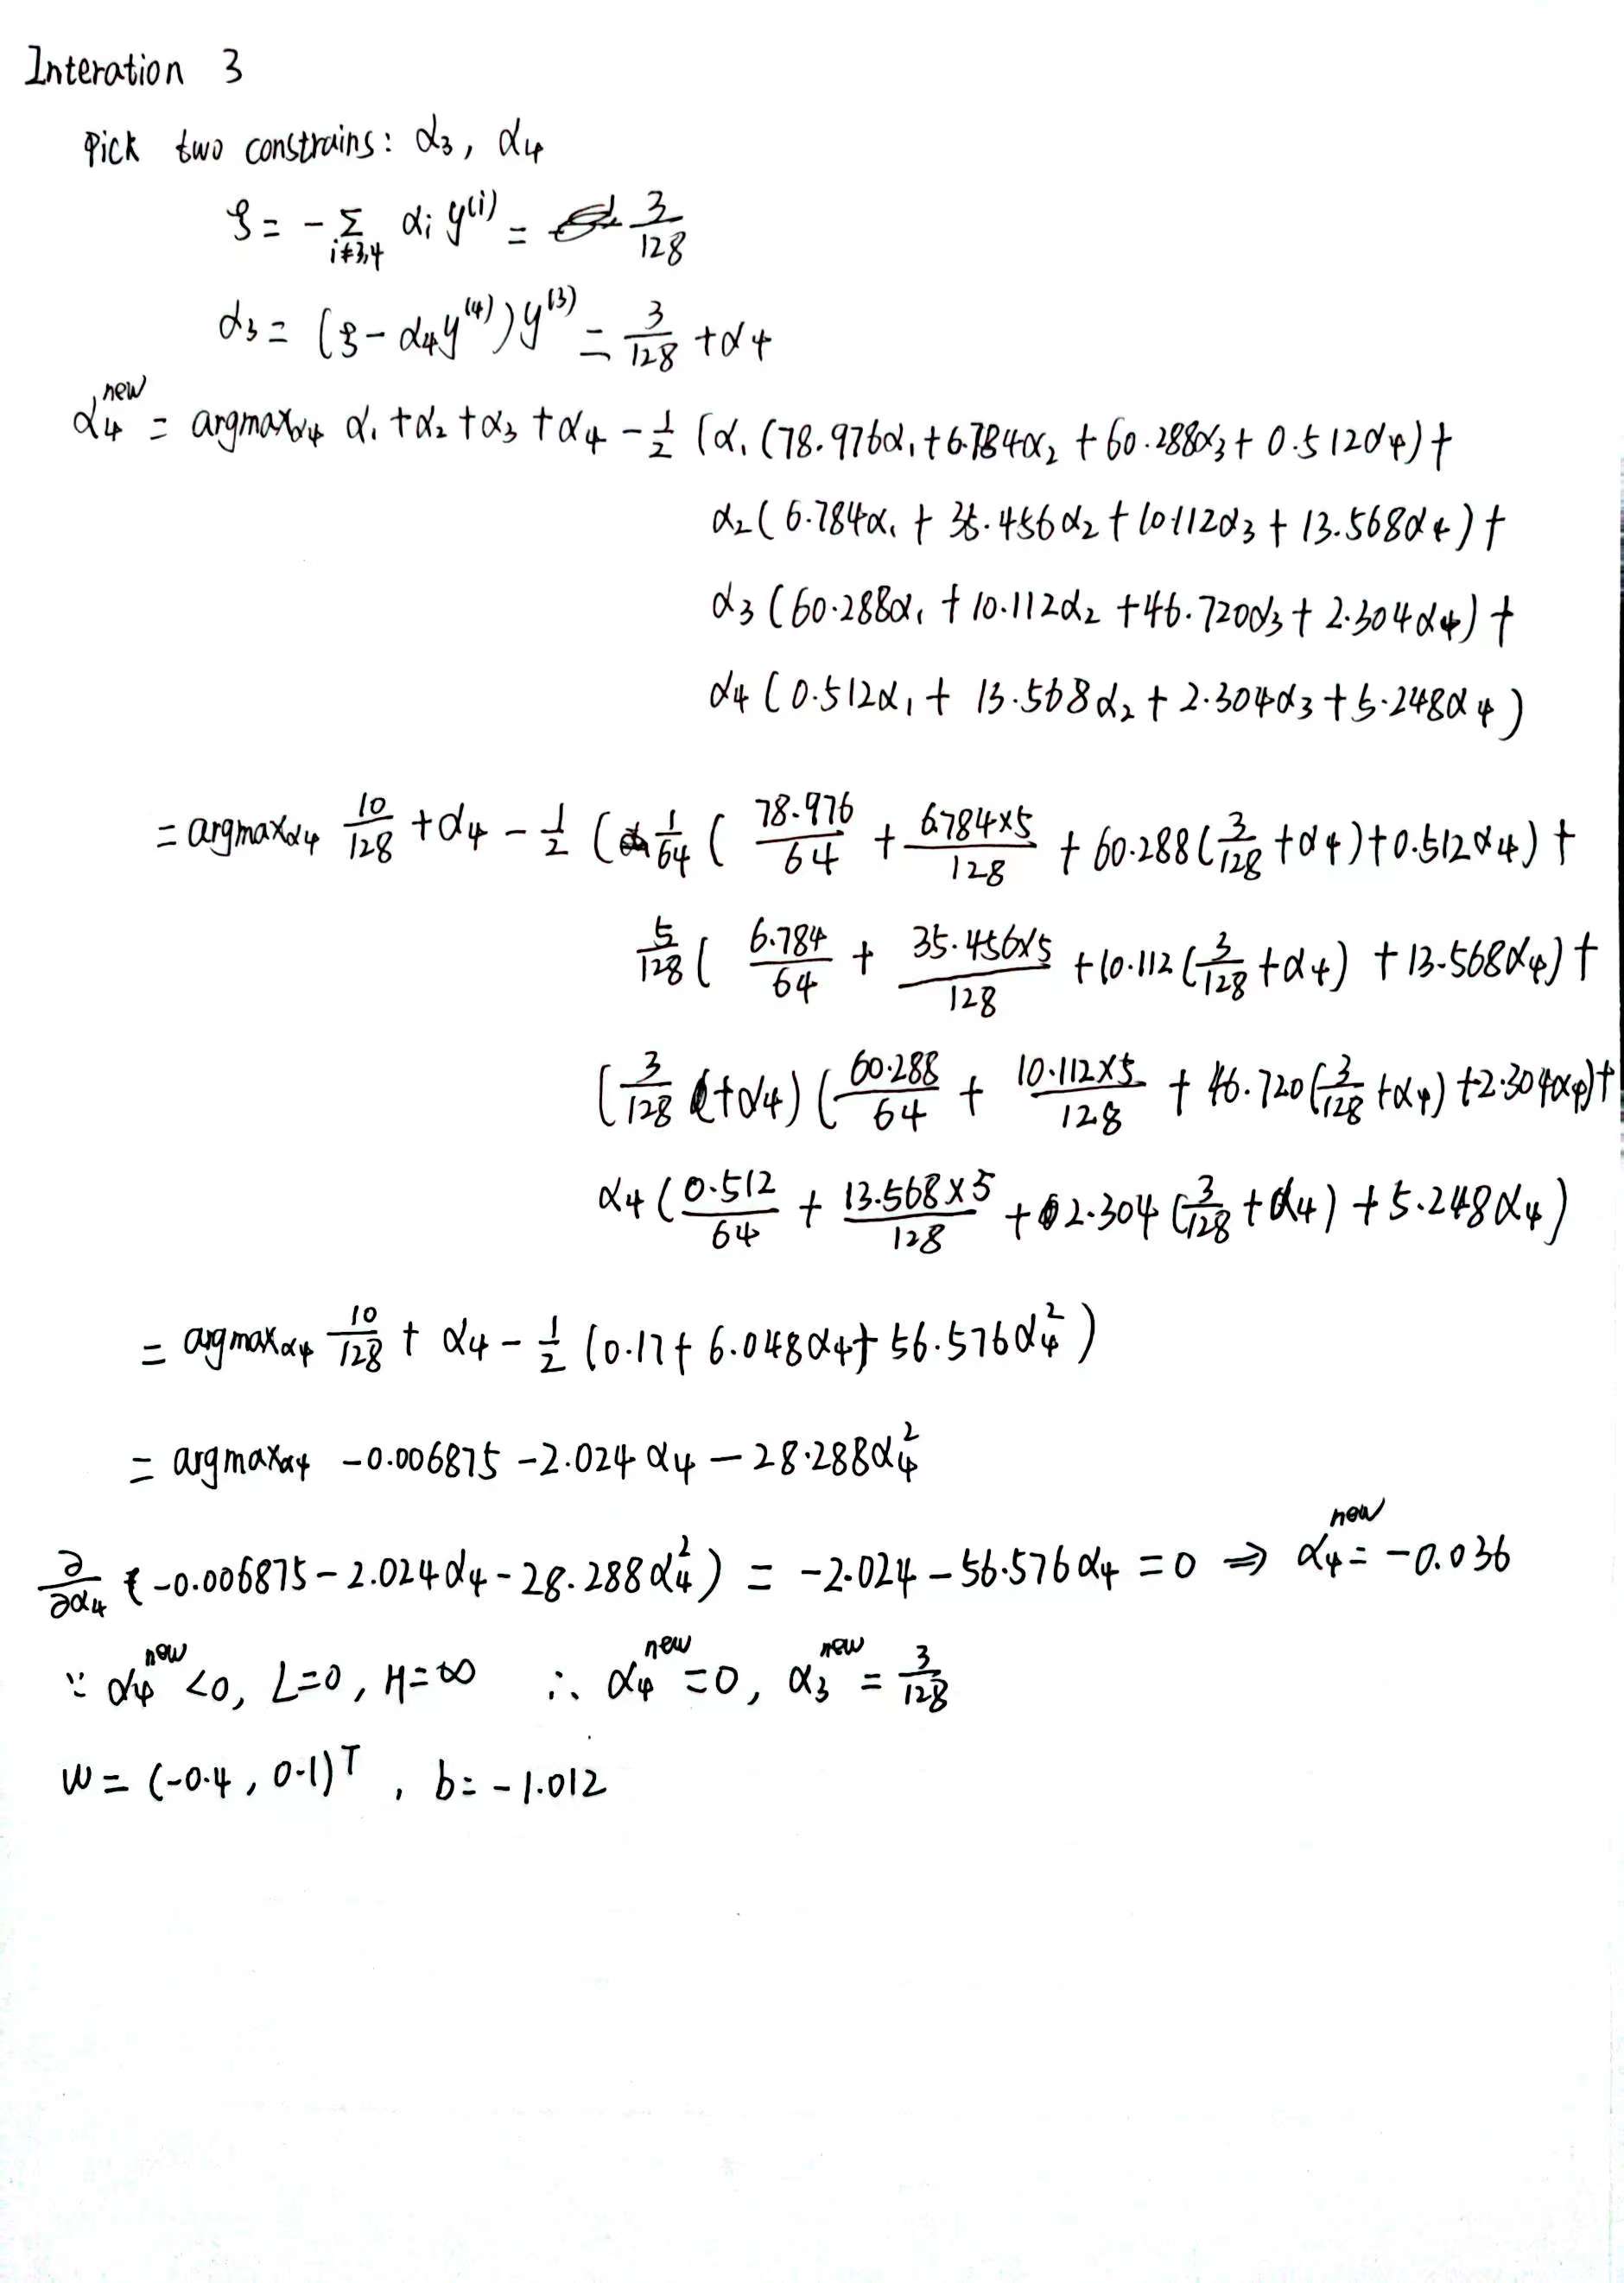 Interation 3
Pick two constrains: α₃, α₄
ξ = - Σ_{i≠3,4} αᵢ y^{(i)} = 3/128
α₃ = (ξ - α₄y^{(4)})y^{(3)} = 3/128 + α₄
α₄^{new} = argmax_{α₄} α₁ + α₂ + α₃ + α₄ - 1/2 (α₁(78.976α₁ + 6.784α₂ + 60.288α₃ + 0.512α₄) +
α₂(6.784α₁ + 35.456α₂ + 10.112α₃ + 13.568α₄) +
α₃(60.288α₁ + 10.112α₂ + 46.720α₃ + 2.304α₄) +
α₄(0.512α₁ + 13.568α₂ + 2.304α₃ + 5.248α₄)
= argmax_{α₄} 10/128 + α₄ - 1/2 (1/64 (78.976/64 + 6.784×5/128 + 60.288(3/128 + α₄) + 0.512α₄) +
5/128 (6.784/64 + 35.456×5/128 + 10.112(3/128 + α₄) + 13.568α₄) +
(3/128 + α₄)(60.288/64 + 10.112×5/128 + 46.720(3/128 + α₄) + 2.304α₄) +
α₄(0.512/64 + 13.568×5/128 + 2.304(3/128 + α₄) + 5.248α₄)
= argmax_{α₄} 10/128 + α₄ - 1/2 (0.17 + 6.048α₄ + 56.576α₄²)
= argmax_{α₄} -0.006875 - 2.024α₄ - 28.288α₄²
∂/∂α₄ (-0.006875 - 2.024α₄ - 28.288α₄²) = -2.024 - 56.576α₄ = 0 ⇒ α₄^{new} = -0.036
∵ α₄^{new} < 0, L=0, H=∞ ∴ α₄^{new} = 0, α₃^{new} = 3/128
w = (-0.4, 0.1)^T, b = -1.012